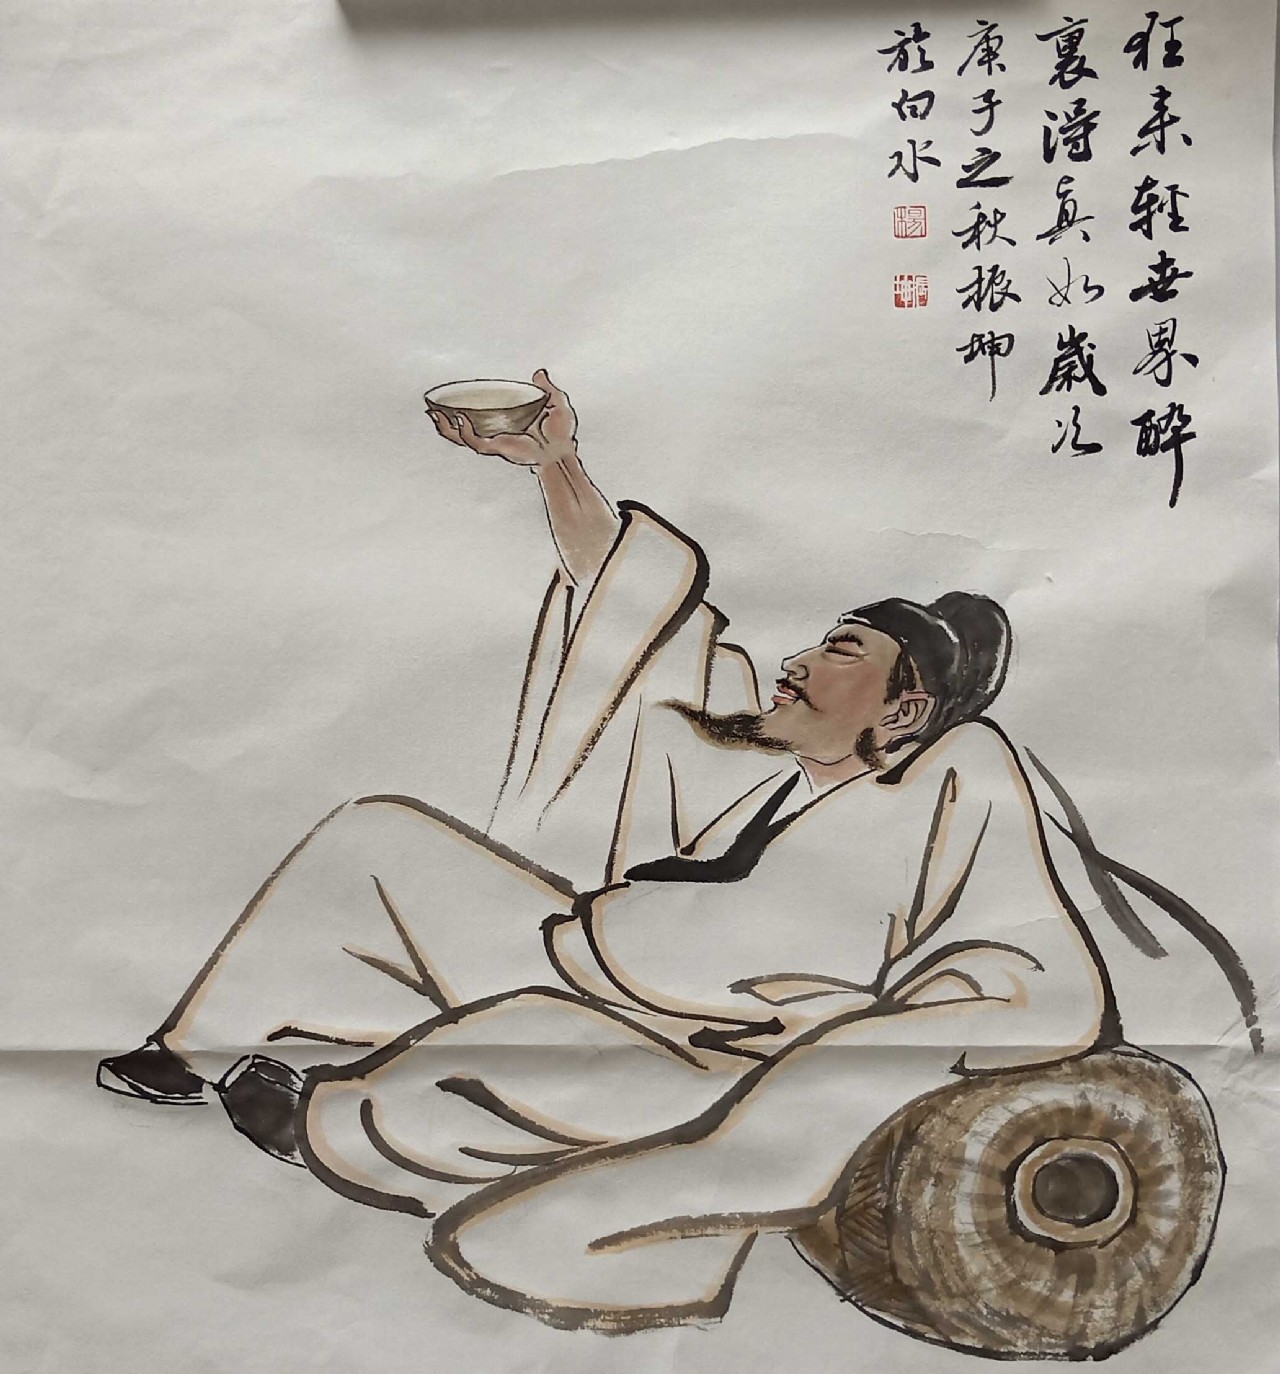 狂来輕世界醉
裏得真如歲次
庚子之秋振坤
於白水
楊
振坤